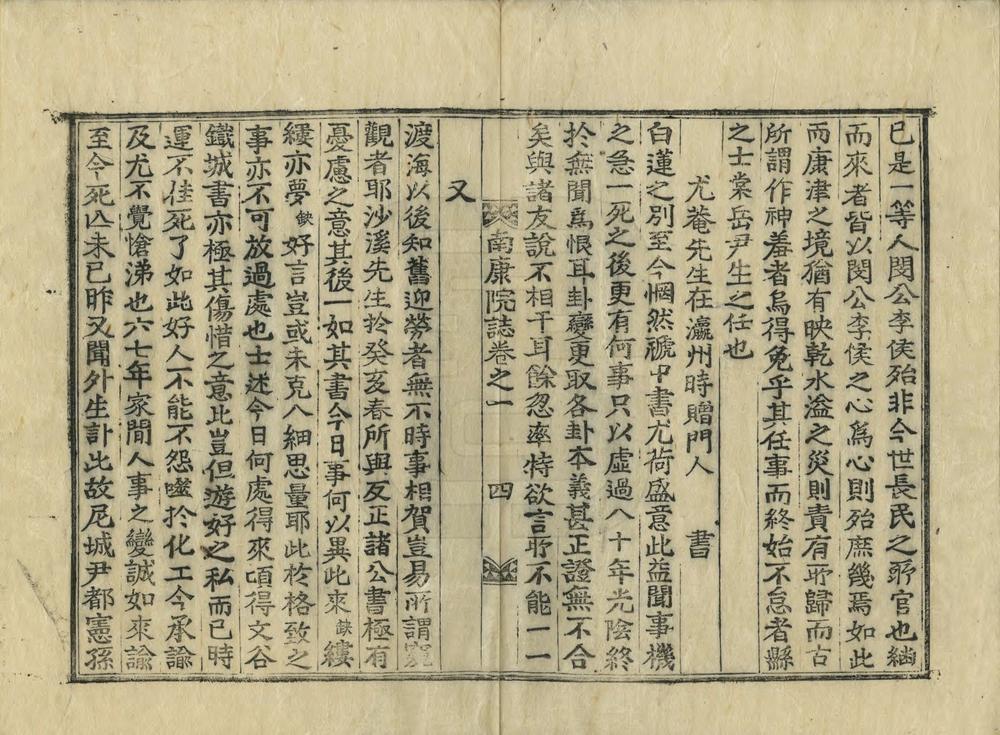 已是一等人閔公李侯殆非今世長民之所官也緬
而來者皆以閔公李侯之心爲心則殆庶幾焉如此
而康津之境猶有暎乾水溢之災則責有所歸而古
所謂作神羞者烏得免乎其任事而終始不怠者縣
之士棠岳尹生之任也
尤菴先生在瀛州時贈門人 書
白蓮之別至今悃然褫中書尤荷盛意此益聞事機
之急一死之後更有何事只以虛過八十年光陰終
於無聞爲恨耳卦變更取各卦本義甚正證無不合
矣與諸友說不相干耳餘忽率特欲言所不能一一
南康院誌卷之一 四
又
渡海以後知舊迎勞者無不時事相賀豈易所謂窺
觀者耶沙溪先生於癸亥春所與反正諸公書極有
憂慮之意其後一如其書今日事何以異此來缺縷
縷亦夢缺好言豈或未克入細思量耶此於格致之
事亦不可放過處也士述今日何處得來頃得文谷
鐵城書亦極其傷惜之意此豈但遊好之私而已時
運不佳死了如此好人不能不怨噬於化工今承諭
及尤不覺愴涕也六七年家間人事之變誠如來諭
至今死亡未已昨又聞外生訃此故尼城尹都憲孫